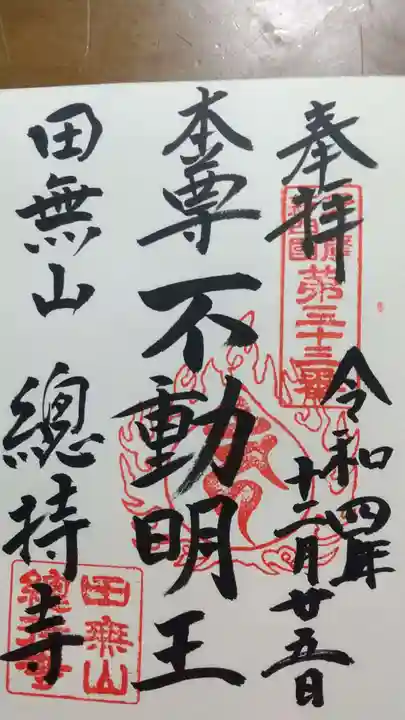 奉拝
令和四年
十二月廿五日
第三十三番
本尊 不動明王
田無山 總持寺
田無山
總持寺